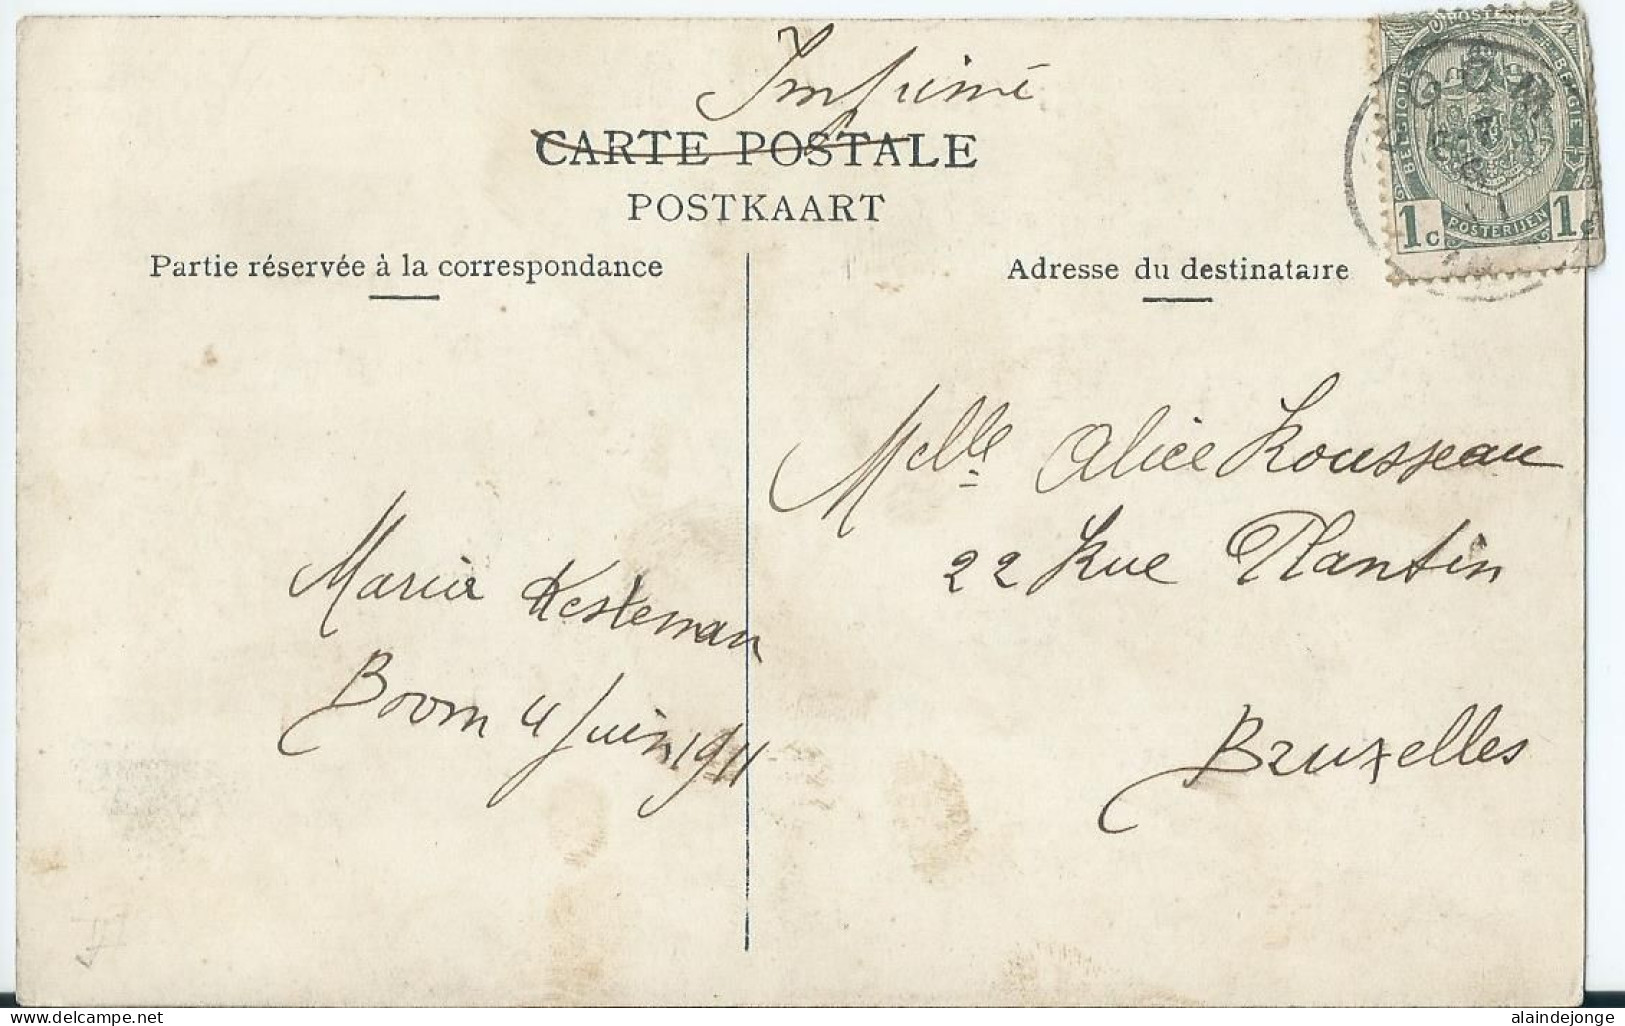 Imprimé
CARTE POSTALE
POSTKAART
Partie réservée à la correspondance
Adresse du destinataire
POSTES
BELGIQUE
BELGIE
1c POSTERIJEN 1c
Melle Alice Rousseau
22 Rue Plantin
Bruxelles
Maria Kesteman
Boom 4 Juin 1911
delcampe.net
alaindejonge